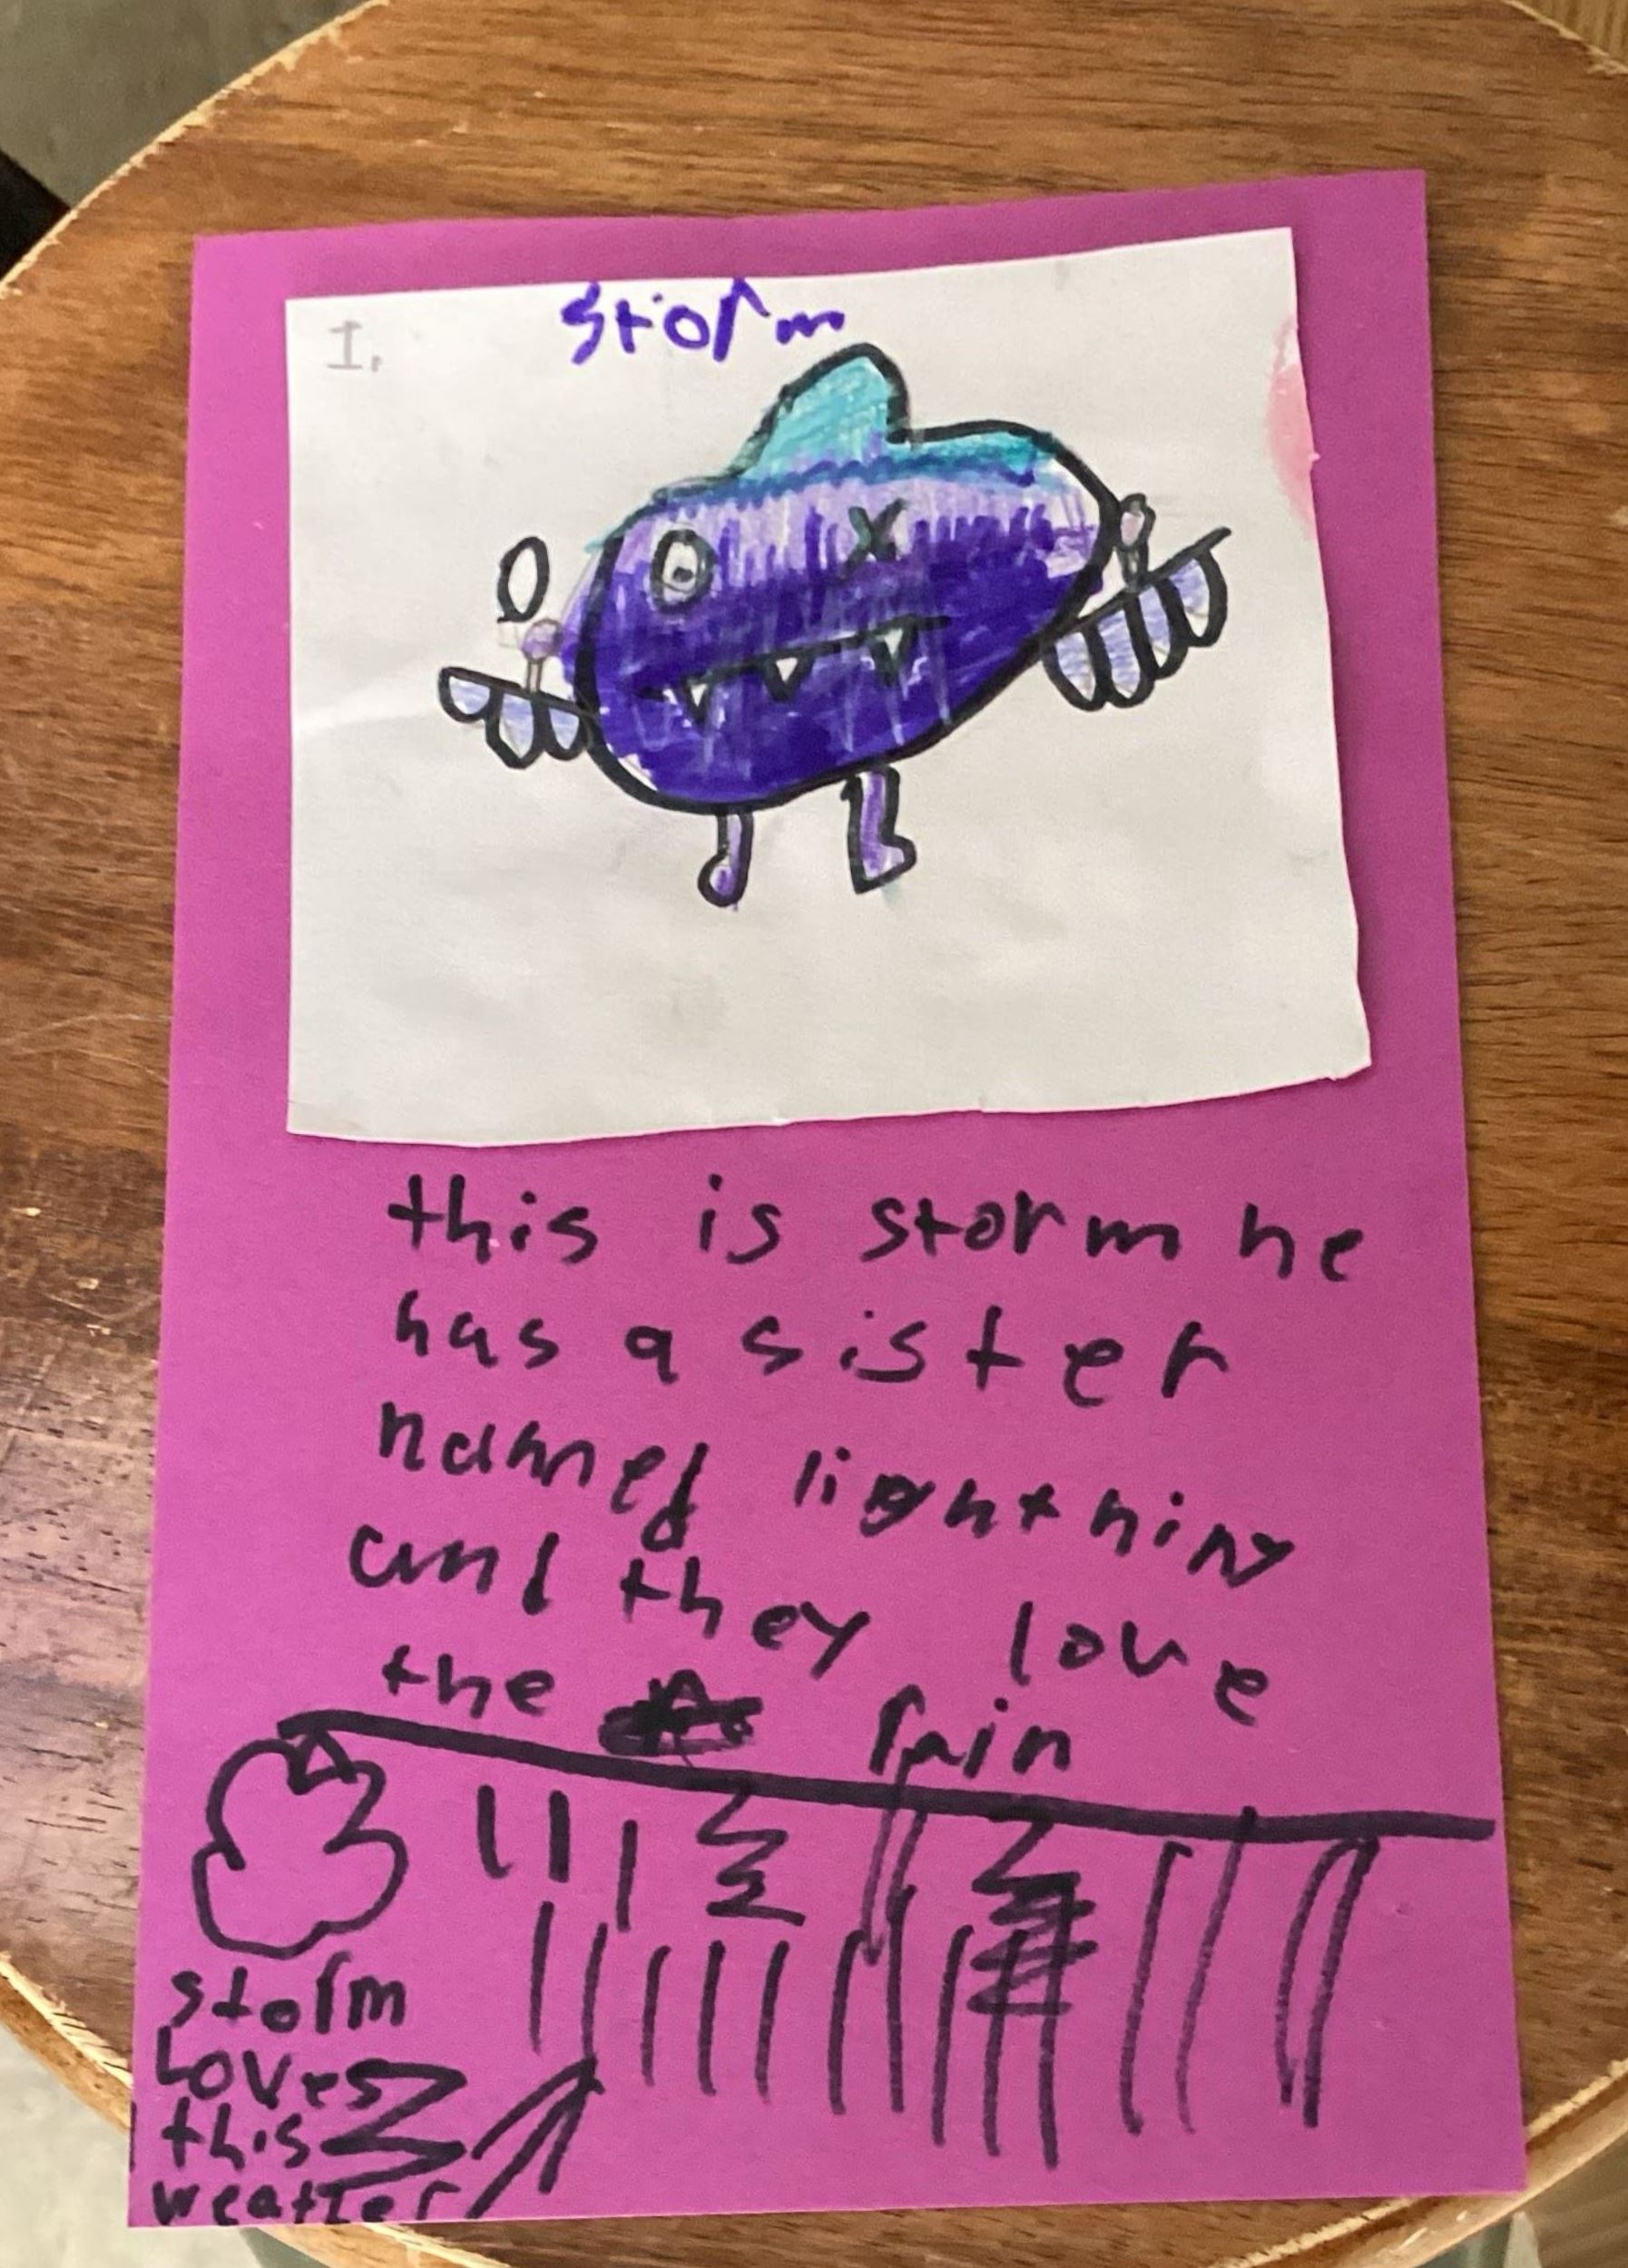 1.
storm
this is storm he
has a sister
named lightning
and they love
the rain
storm
Loves
this
weatter